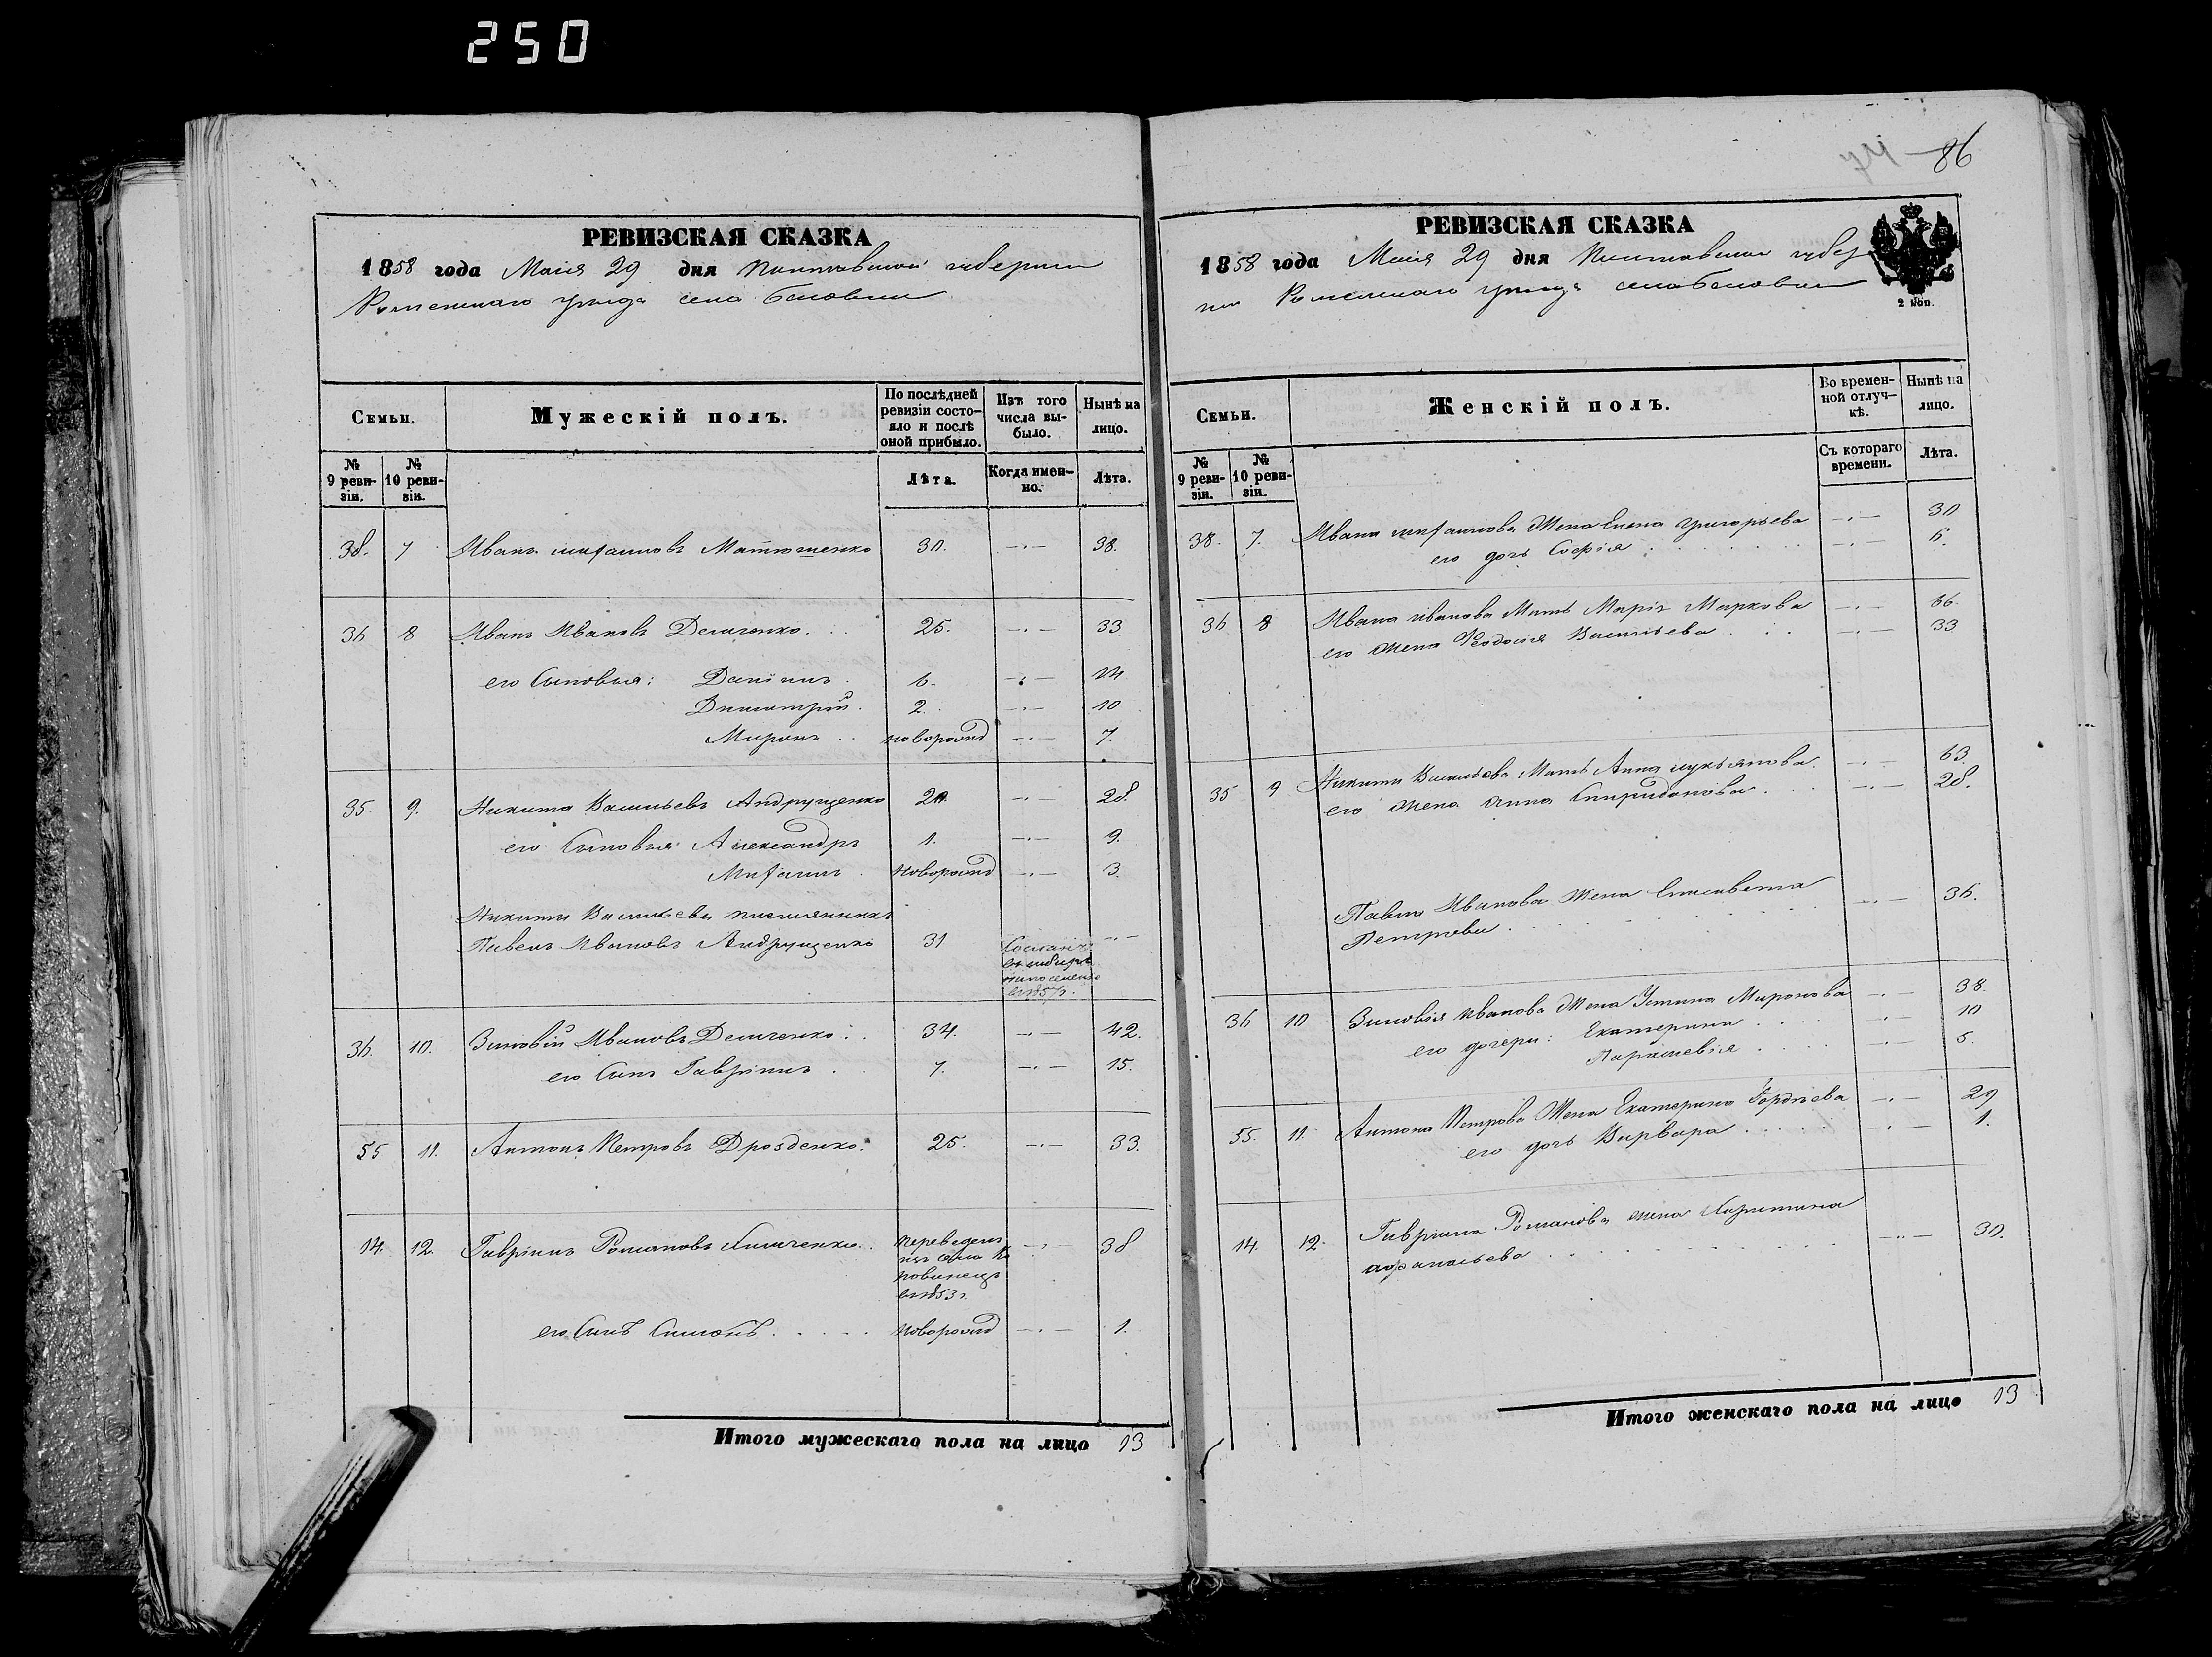 250
86
РЕВИЗСКАЯ СКАЗКА
1858 года Маія 29 дня Полтавской губерніи
Роменскаго уезда села Беловки
Семьи.
Мужескій полъ.
По послѣдней ревизіи состо-
яло и послѣ
оной прибыло.
Изъ того
числа вы-
было.
Нынѣ на
лицо.
№
9 реви-
зіи.
№
10 реви-
зіи.
Лѣта.
Когда имен-
но.
Лѣта.
38. 7 Иванъ Матюшенко 30. —.— 38.
36 8 Иванъ Ивановъ Демченко. 25. —.— 33.
его Сыновья: Даніилъ. 6. —.— 14
Димитрій. 2. —.— 10
Миронъ новорожд —.— 7.
35. 9. Никита Васильевъ Андрущенко 20. —.— 28.
его Сыновья Александръ 1. —.— 9.
Михаилъ новорожд —.— 3.
Никиты Васильева племянникъ
Павелъ Ивановъ Андрущенко 31 —.—
36. 10. Зиновій Ивановъ Демченко. 34. —.— 42.
его Сынъ Гавріилъ 7. —.— 15.
55 11. Антонъ Петровъ Дрозденко. 25. —.— 33.
14. 12. Гавріилъ Романовъ переведенъ —.— 38
изъ села
въ 1853 г.
его Сынъ Симонъ новорожд —.— 1.
Итого мужескаго пола на лицо 13
РЕВИЗСКАЯ СКАЗКА
1858 года Маія 29 дня Полтавской губер
ніи Роменскаго уезда села Беловки
2 коп.
Семьи.
Женскій полъ.
Во времен-
ной отлуч-
кѣ.
Нынѣ на
лицо.
№
9 реви-
зіи.
№
10 реви-
зіи.
Съ котораго
времени.
Лѣта.
38. 7. Ивана Жена Елена Григорьева —.— 30
его дочь Софія —.— 6.
36 8 Ивана Иванова Мать Марія Маркова —.— 66.
его жена Феодосія Васильева —.— 33
35 9 Никиты Васильева Мать Анна Лукьянова. —.— 63.
его жена Анна Спиридонова. —.— 28.
Павла Иванова Жена Елисавета —.— 36.
Петрова
36 10 Зиновія Иванова Жена Устина Миронова —.— 38.
его дочери: Екатерина —.— 10
Параскевія —.— 5.
55. 11. Антона Петрова Жена Екатерина Гордѣева —.— 29
его дочь Варвара —.— 1.
14. 12. Гавріила Романова жена Христина —.— 30.
Афанасьева
Итого женскаго пола на лицо 13